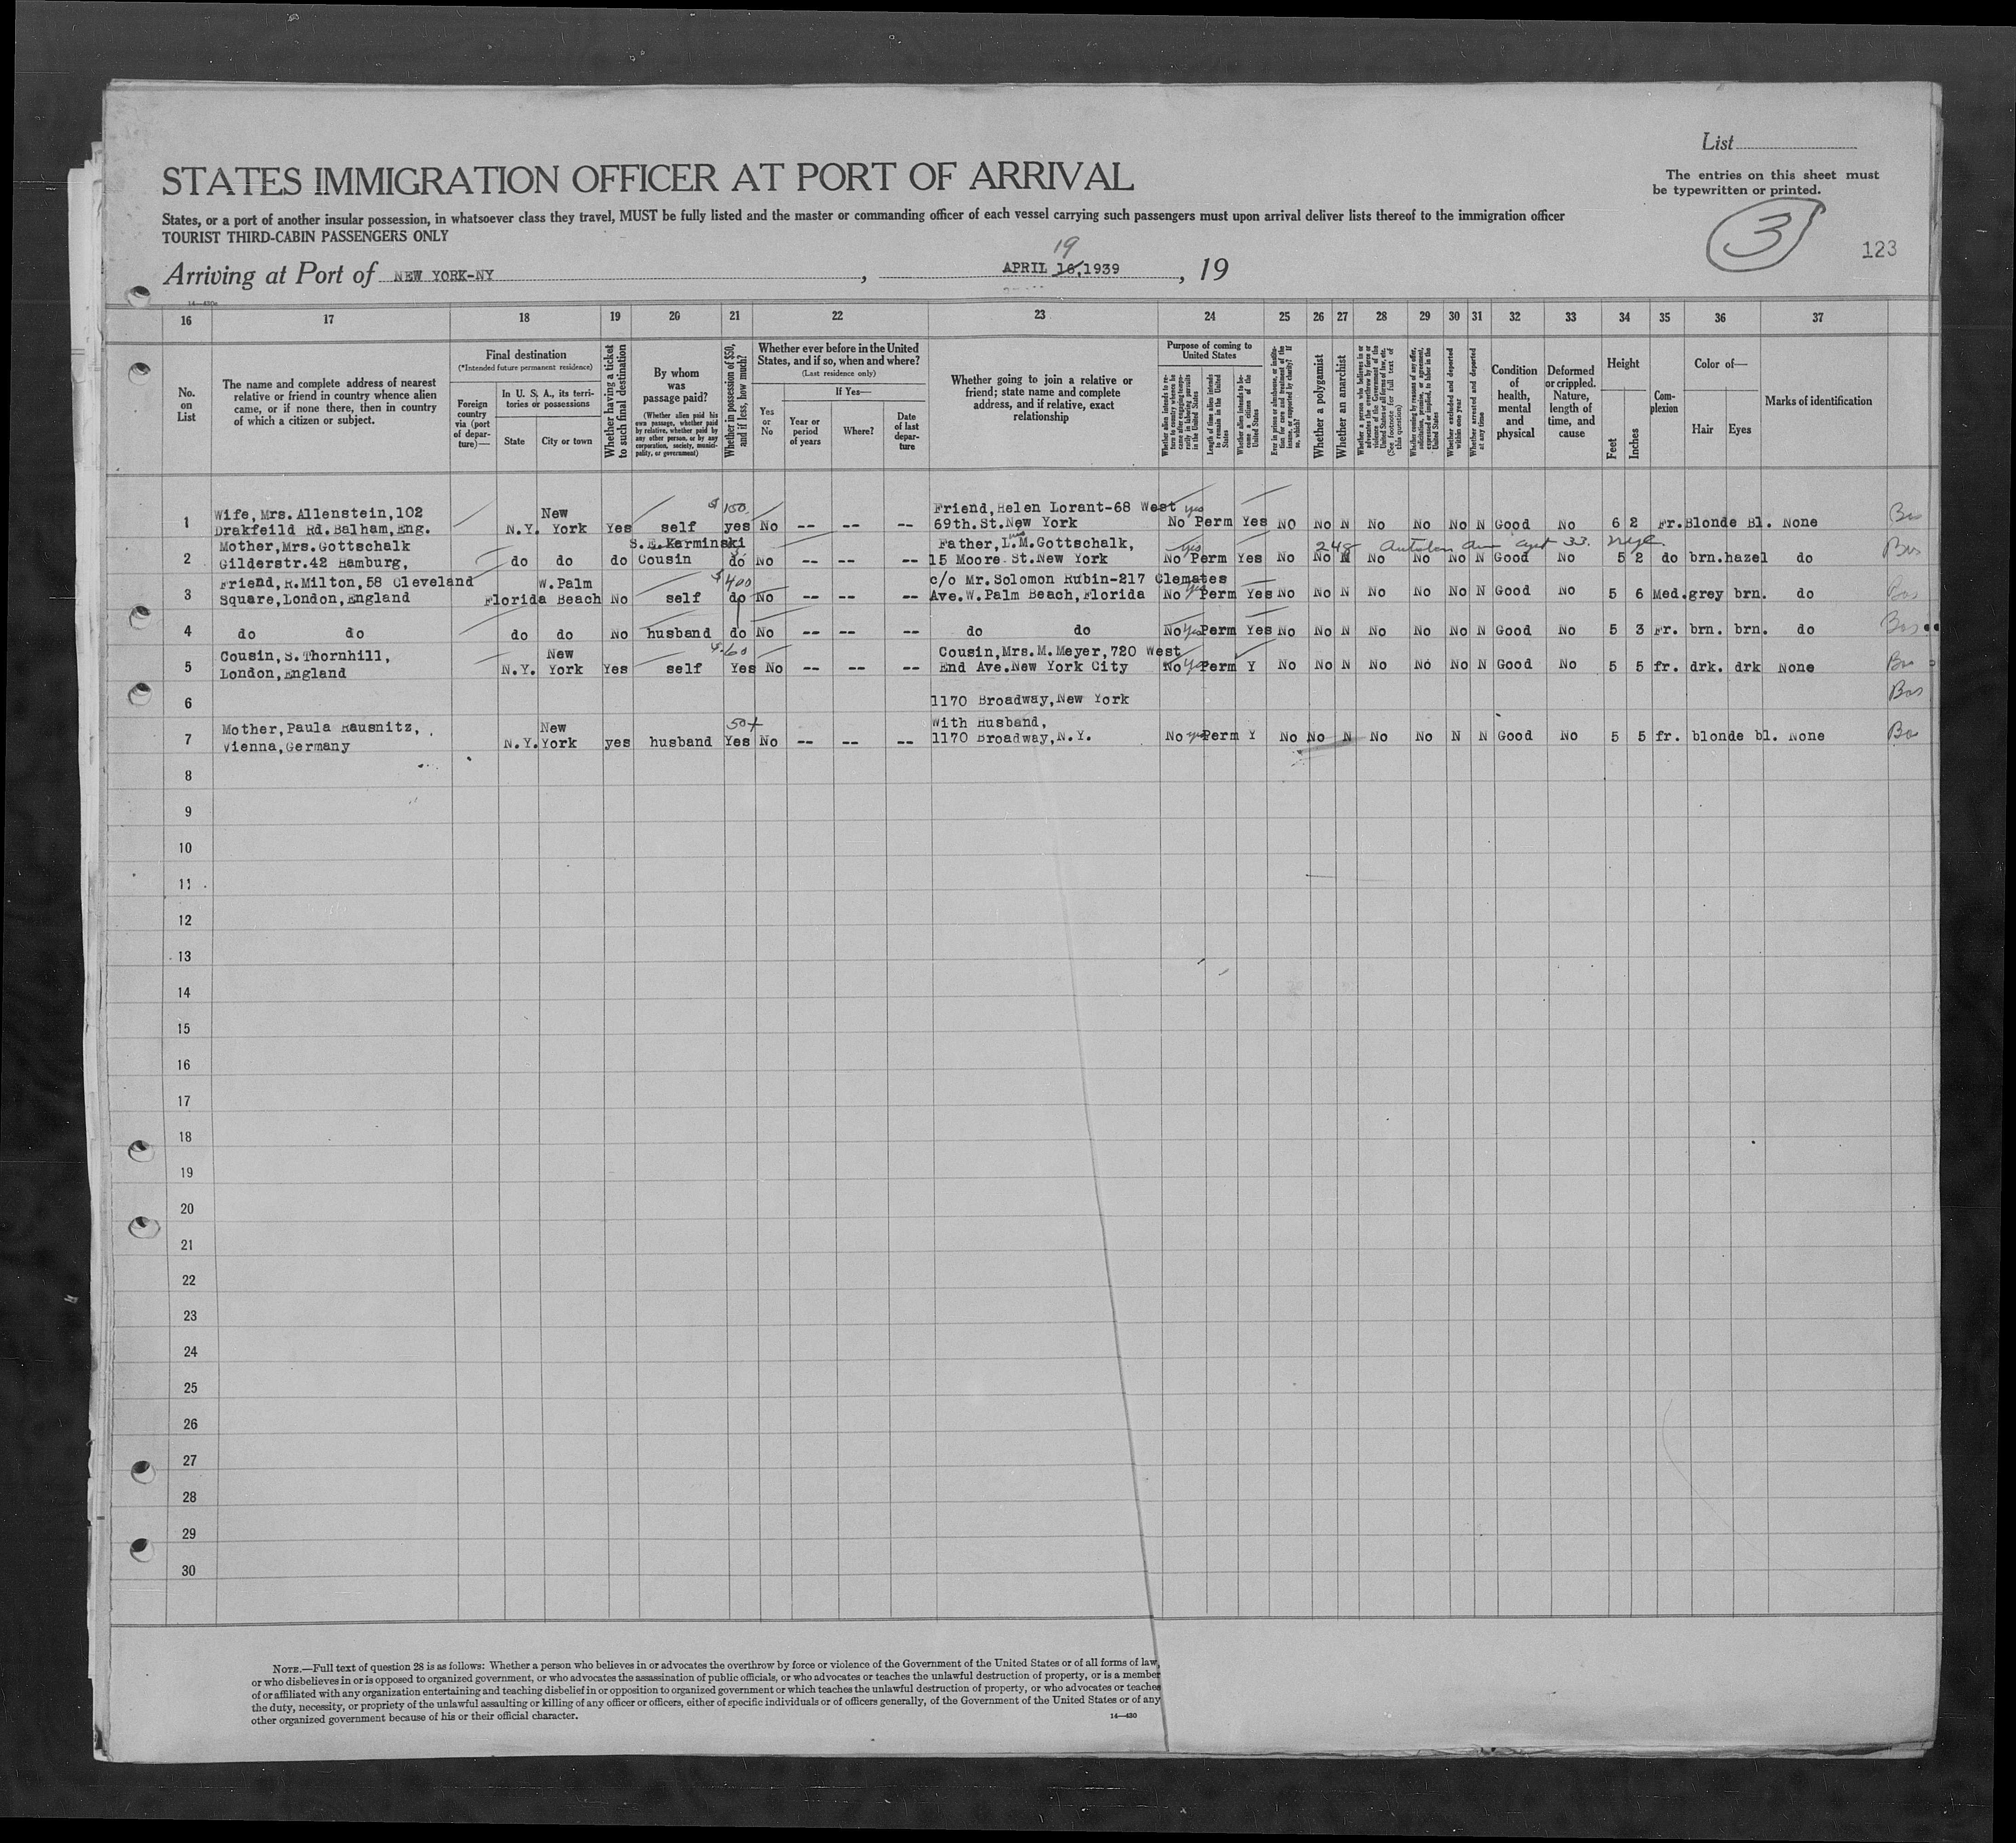 List
STATES IMMIGRATION OFFICER AT PORT OF ARRIVAL
The entries on this sheet must
be typewritten or printed.
States, or a port of another insular possession, in whatsoever class they travel, MUST be fully listed and the master or commanding officer of each vessel carrying such passengers must upon arrival deliver lists thereof to the immigration officer
TOURIST THIRD-CABIN PASSENGERS ONLY
3
123
19
Arriving at Port of NEW YORK-NY, APRIL 18,1939, 19
14—430a
16 17 18 19 20 21 22 23 24 25 26 27 28 29 30 31 32 33 34 35 36 37
No. on List
The name and complete address of nearest
relative or friend in country whence alien
came, or if none there, then in country
of which a citizen or subject.
Final destination
(*Intended future permanent residence)
Foreign
country
via (port
of depar-
ture)—
In U. S. A., its terri-
tories or possessions
State
City or town
Whether having a ticket
to such final destination
By whom
was
passage paid?
(Whether alien paid his
own passage, whether paid
by relative, whether paid by
any other person, or by any
corporation, society, munici-
pality, or government)
Whether in possession of $50,
and if less, how much?
Whether ever before in the United
States, and if so, when and where?
(Last residence only)
Yes
or
No
If Yes—
Year or
period
of years
Where?
Date
of last
depar-
ture
Whether going to join a relative or
friend; state name and complete
address, and if relative, exact
relationship
Purpose of coming to
United States
Whether alien intends to re-
turn to country whence he
came after engaging tempo-
rarily in laboring pursuits
in the United States
Length of time alien intends
to remain in the United
States
Whether alien intends to be-
come a citizen of the
United States
Ever in prison or almshouse, or institu-
tion for care and treatment of the
insane, or supported by charity? If
so, which?
Whether a polygamist
Whether an anarchist
Whether a person who believes in or
advocates the overthrow by force or
violence of the Government of the
United States or all forms of law, etc.
(See footnote for full text of
this question)
Whether coming by reason of any offer,
solicitation, promise, or agreement,
expressed or implied, to labor in the
United States
Whether excluded and deported
within one year
Whether arrested and deported
at any time
Condition
of
health,
mental
and
physical
Deformed
or crippled.
Nature,
length of
time, and
cause
Height
Feet
Inches
Com-
plexion
Color of—
Hair
Eyes
Marks of identification
$150. yes
1 Wife, Mrs. Allenstein, 102
Drakfeild Rd. Balham, Eng. N.Y. New York Yes self yes No -- -- -- Friend, Helen Lorant-68 West
69th.St.New York No Perm Yes NO No N No No No N Good No 6 2 Fr. Blonde Bl. None
2 Mother, Mrs. Gottschalk
Gilderstr.42 Hamburg, do do do S.E.Karminski
Cousin do No -- -- -- Father, L.M.Gottschalk,
15 Moore St.New York No yes Perm Yes No No N No No No N Good No 5 2 do brn. hazel do
248 33.
3 Friend, R.Milton, 58 Cleveland
Square, London, England Florida W.Palm Beach No self $400 do No -- -- -- c/o Mr. Solomon Rubin-217 Clemates
Ave.W.Palm Beach, Florida No yes Perm Yes No No N No No No N Good No 5 6 Med. grey brn. do
4 do do do do No husband do No -- -- -- do do No yes Perm Yes No No N No No No N Good No 5 3 Fr. brn. brn. do
5 Cousin, S. Thornhill,
London, England N.Y. New York Yes self $60 Yes No -- -- -- Cousin, Mrs. M. Meyer, 720 West
End Ave.New York City No yes Perm Y No No N No No No N Good No 5 5 fr. drk. drk None
6 1170 Broadway, New York
7 Mother, Paula Rausnitz,
Vienna, Germany N.Y. New York yes husband 50+ Yes No -- -- -- With Husband,
1170 Broadway, N.Y. No yes Perm Y No No N No No N N Good No 5 5 fr. blonde bl. None
8
9
10
11
12
13
14
15
16
17
18
19
20
21
22
23
24
25
26
27
28
29
30
NOTE.—Full text of question 28 is as follows: Whether a person who believes in or advocates the overthrow by force or violence of the Government of the United States or of all forms of law,
or who disbelieves in or is opposed to organized government, or who advocates the assassination of public officials, or who advocates or teaches the unlawful destruction of property, or is a member
of or affiliated with any organization entertaining and teaching disbelief in or opposition to organized government or which teaches the unlawful destruction of property, or who advocates or teaches
the duty, necessity, or propriety of the unlawful assaulting or killing of any officer or officers, either of specific individuals or of officers generally, of the Government of the United States or of any
other organized government because of his or their official character.
14—430